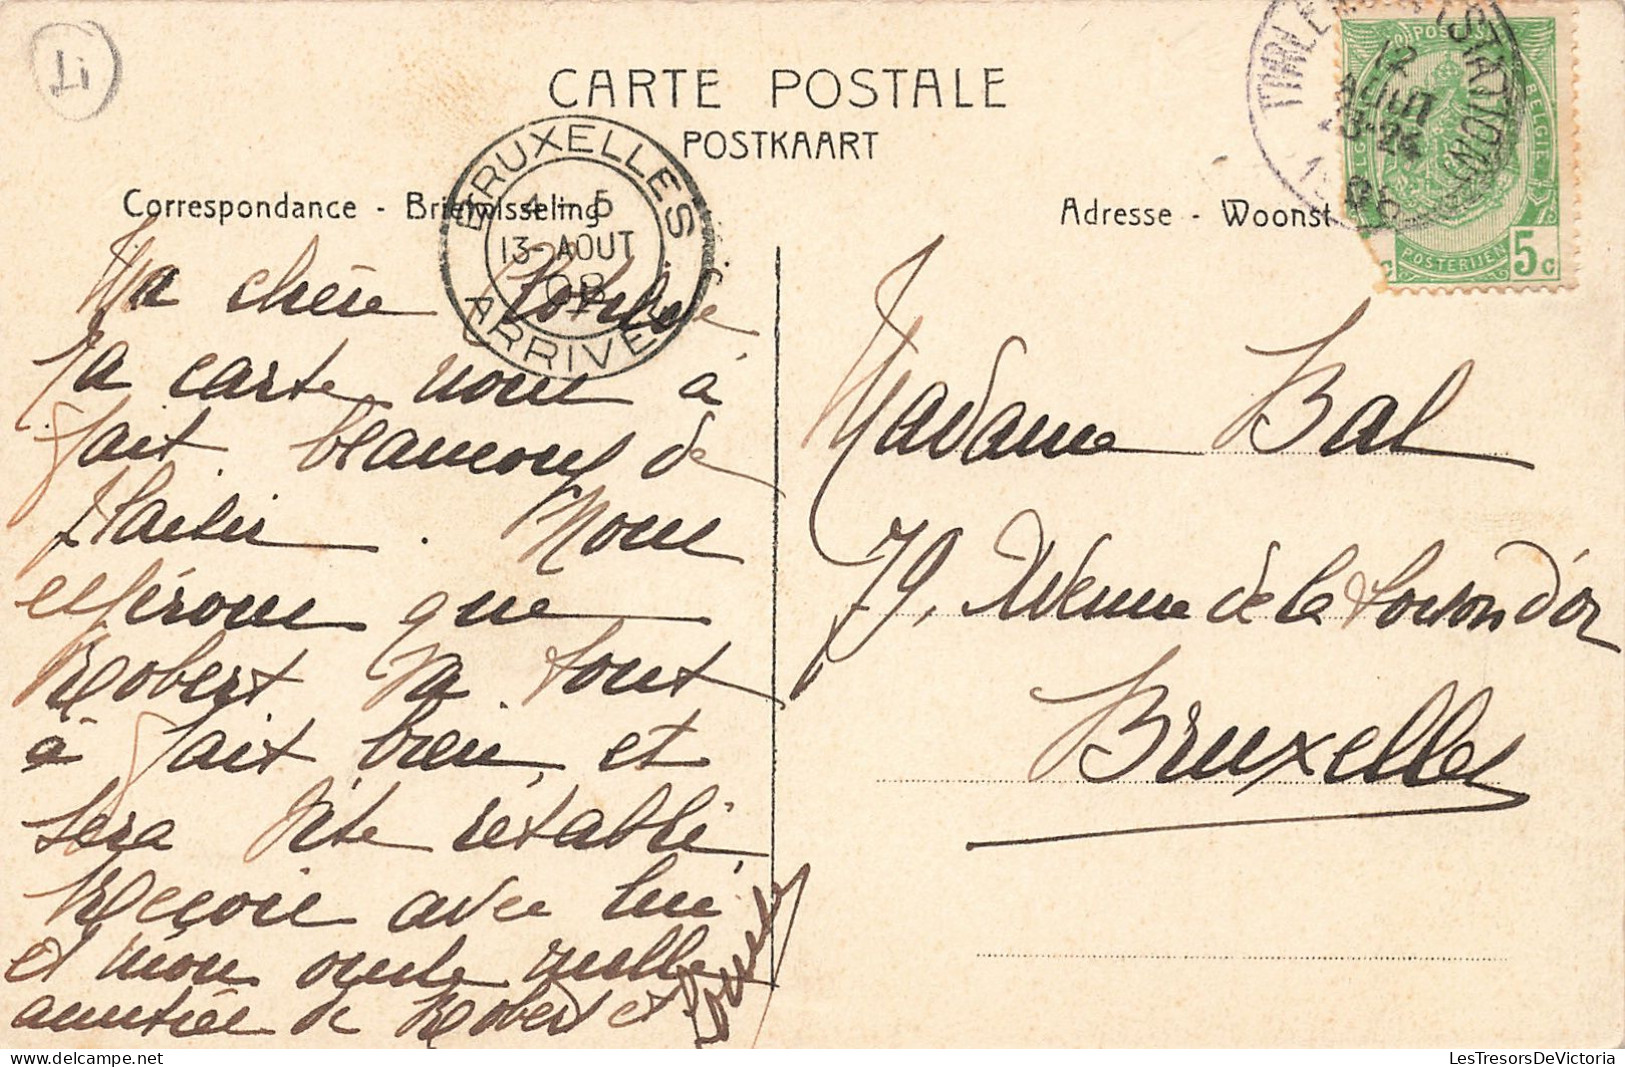 Li
CARTE POSTALE
POSTKAART
Correspondance - Briefwisseling
Adresse - Woonst
BRUXELLES
4 - 5
13 - AOUT
08
ARRIVEE
STATION
12
AOUT
POSTES
BELGIE
POSTERIJEN
5c
Ma chère
Ta carte nous a
fait beaucoup de
plaisir. Nous
espérons que
Robert va tout
à fait bien, et
sera vite rétabli,
Reçois avec lui
et mon oncle mille
amitiés de Robert et
Madame Bal
79, Avenue de la Toison d'or
Bruxelles
LesTresorsDeVictoria